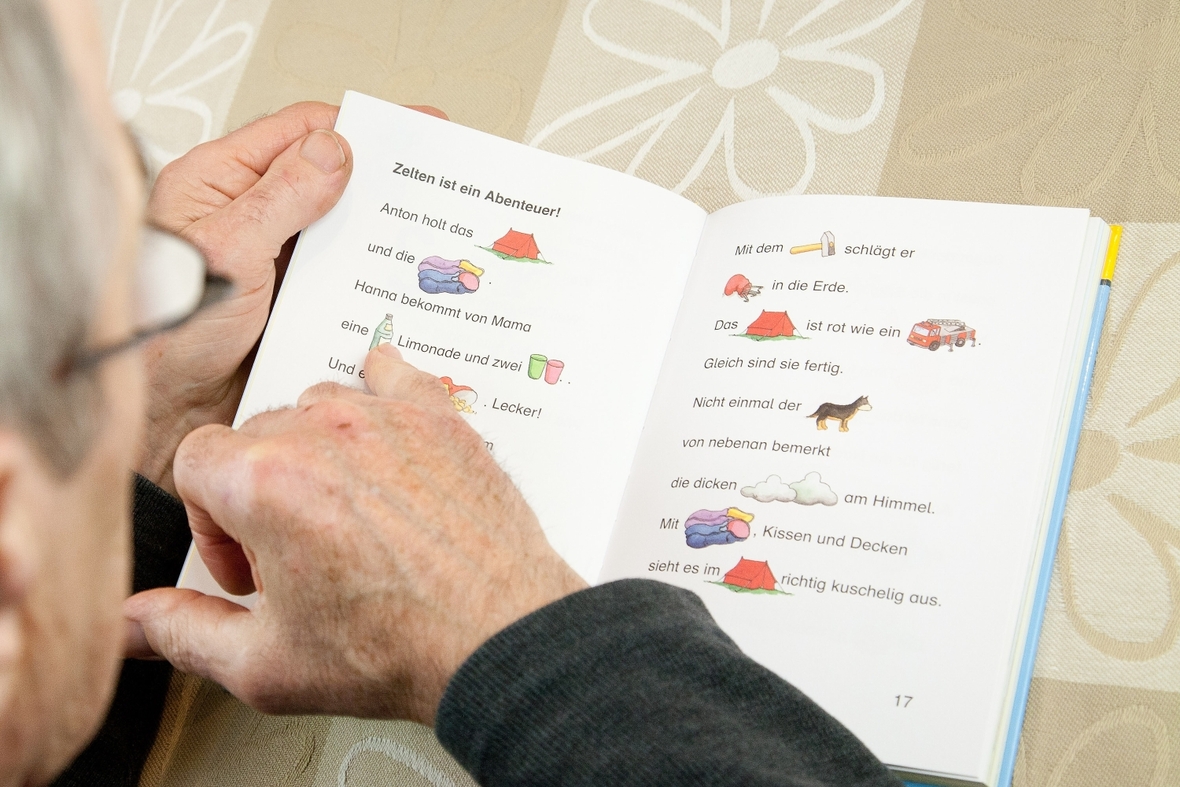 Zelten ist ein Abenteuer!
Anton holt das
und die .
Hanna bekommt von Mama
eine Limonade und zwei . .
Und . Lecker!
Mit dem schlägt er
in die Erde.
Das ist rot wie ein .
Gleich sind sie fertig.
Nicht einmal der
von nebenan bemerkt
die dicken am Himmel.
Mit , Kissen und Decken
sieht es im richtig kuschelig aus.
17